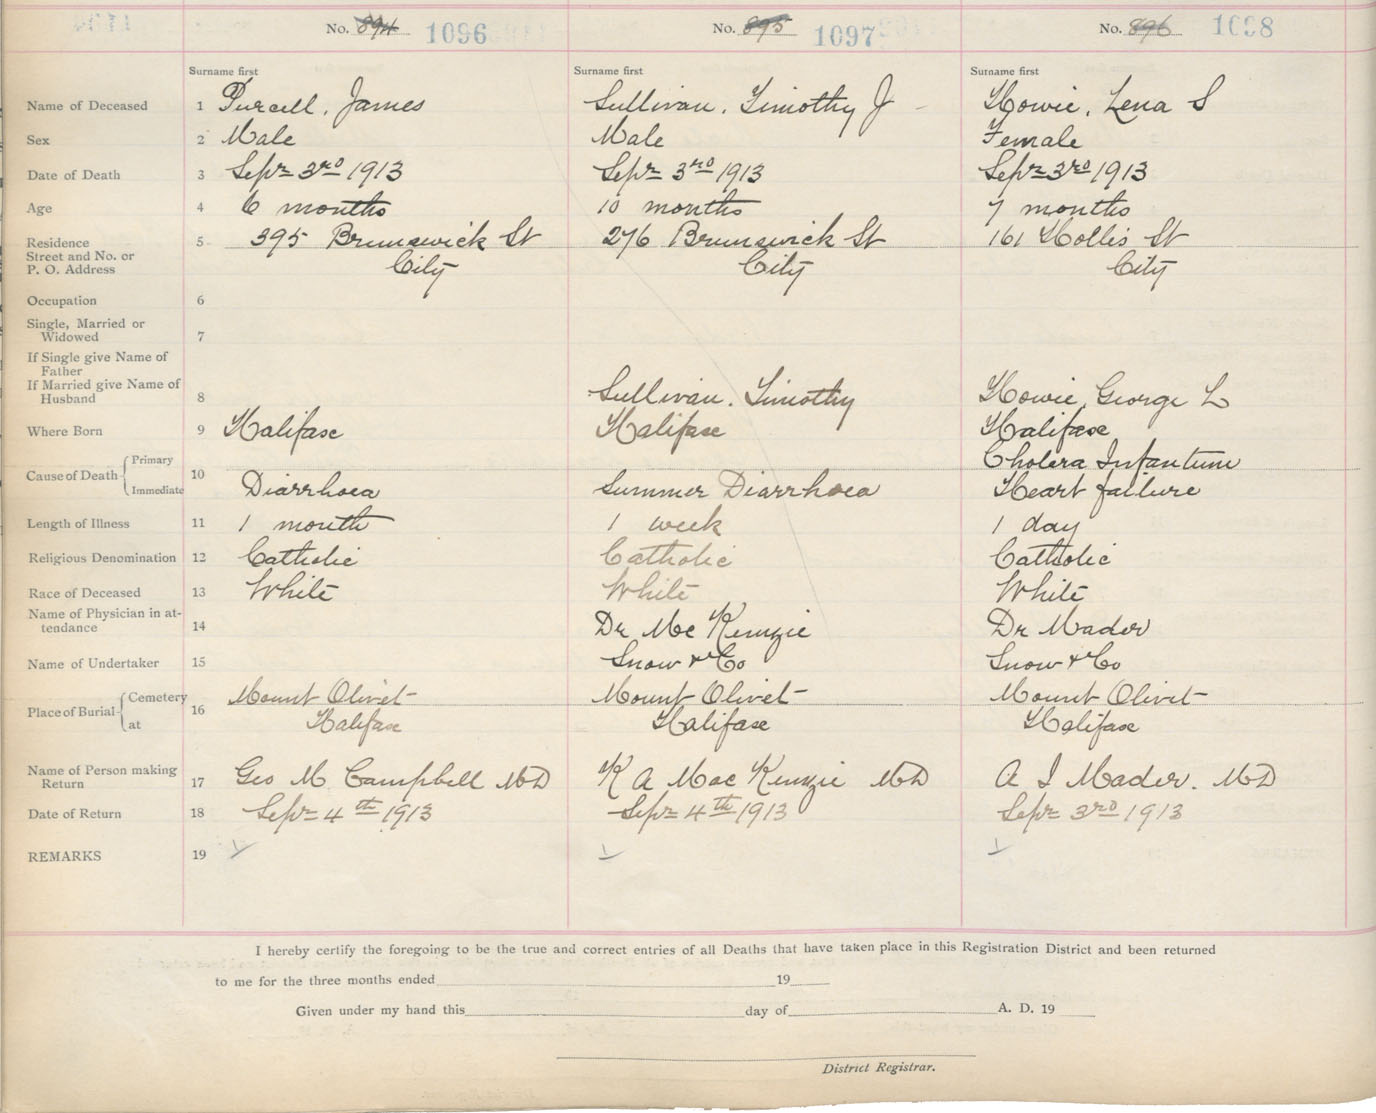 No. 894 1096
No. 895 1097
No. 896 1098
Surname first
Surname first
Surname first
Name of Deceased 1 Purcell, James
Sullivan, Timothy J
Howie, Lena S
Sex 2 Male
Male
Female
Date of Death 3 Sepr 3rd 1913
Sepr 3rd 1913
Sepr 3rd 1913
Age 4 6 months
10 months
7 months
Residence 5 395 Brunswick St
276 Brunswick St
161 Hollis St
Street and No. or
P. O. Address
City
City
City
Occupation 6
Single, Married or
Widowed 7
If Single give Name of
Father
If Married give Name of
Husband 8
Sullivan, Timothy
Howie, George L
Where Born 9 Halifax
Halifax
Halifax
Cause of Death 10
Primary
Cholera Infantum
Immediate
Diarrhoea
Summer Diarrhoea
Heart failure
Length of Illness 11 1 month
1 week
1 day
Religious Denomination 12 Catholic
Catholic
Catholic
Race of Deceased 13 White
White
White
Name of Physician in at-
tendance 14
Dr Mc Kenzie
Dr Mader
Name of Undertaker 15
Snow & Co
Snow & Co
Place of Burial 16
Cemetery
Mount Olivet
Mount Olivet
Mount Olivet
at
Halifax
Halifax
Halifax
Name of Person making
Return 17 Geo M Campbell MD
K A Mac Kenzie MD
A I Mader. MD
Date of Return 18 Sepr 4th 1913
Sepr 4th 1913
Sepr 3rd 1913
REMARKS 19
I hereby certify the foregoing to be the true and correct entries of all Deaths that have taken place in this Registration District and been returned
to me for the three months ended 19
Given under my hand this day of A. D. 19
District Registrar.